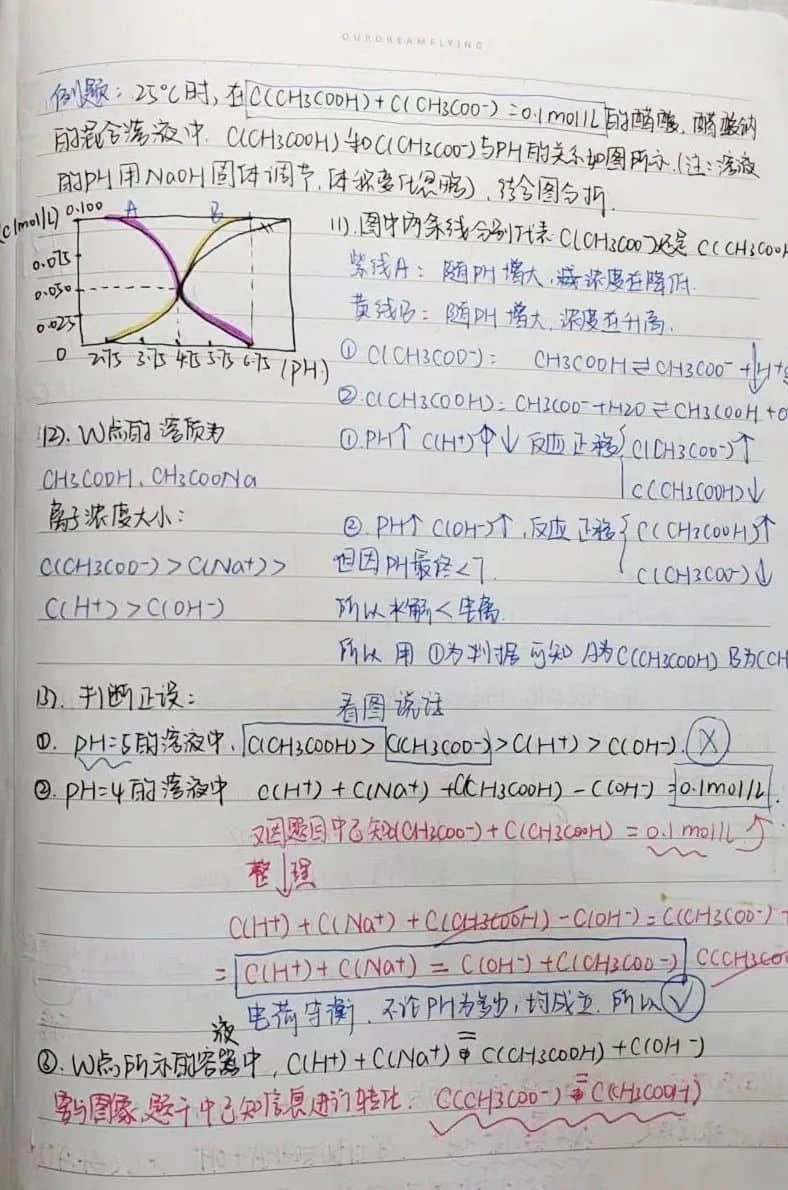 OURDREAMFLYING
例题：25℃时，在C(CH3COOH)+C(CH3COO-)=0.1mol/L的醋酸、醋酸钠
的混合溶液中，C(CH3COOH)和C(CH3COO-)与PH的关系如图所示.(注：溶液
的PH用NaOH固体调节，体积变化忽略)，结合图分析.
C(mol/L) 0.100 A B
0.075
0.050
0.025
0 2.75 3.75 4.75 5.75 6.75 (PH)
(1).图中两条线分别代表C(CH3COO-)还是C(CH3COOH
紫线A：随PH增大，浓度在降低.
黄线B：随PH增大，浓度在升高.
① C(CH3COO-)： CH3COOH⇌CH3COO-+H+
②.C(CH3COOH)：CH3COO-+H2O⇌CH3COOH+O
(2). W点的溶质为
CH3COOH、CH3COONa
离子浓度大小：
C(CH3COO-)>C(Na+)>
C(H+)>C(OH-)
①.PH↑ C(H+)↓ 反应正移{C(CH3COO-)↑
C(CH3COOH)↓
②.PH↑ C(OH-)↑，反应正移{C(CH3COOH)↑
C(CH3COO-)↓
但因PH最终<7.
所以水解<电离.
所以用①为判据可知 A为C(CH3COOH) B为C(CH
(3). 判断正误： 看图说话
①. PH=5的溶液中，C(CH3COOH)>C(CH3COO-)>C(H+)>C(OH-). X
②. PH=4的溶液中 C(H+)+C(Na+)+C(CH3COOH)-C(OH-)=0.1mol/L.
又因题目中已知C(CH3COO-)+C(CH3COOH)=0.1mol/L
整↓理
C(H+)+C(Na+)+C(CH3COOH)-C(OH-)=C(CH3COO-)+
=C(H+)+C(Na+)=C(OH-)+C(CH3COO-) C(CH3COO
电荷守衡，不论PH为多少，均成立，所以√
③. W点所示的溶液中，C(H+)+C(Na+)=C(CH3COOH)+C(OH-)
要与图象、题干中已知信息进行转化. C(CH3COO-)=C(CH3COOH)